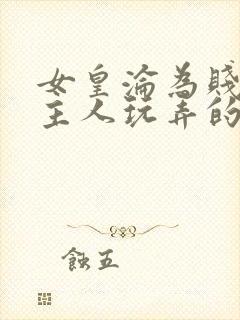 女皇淪為賤
主人玩弄的
蝕五